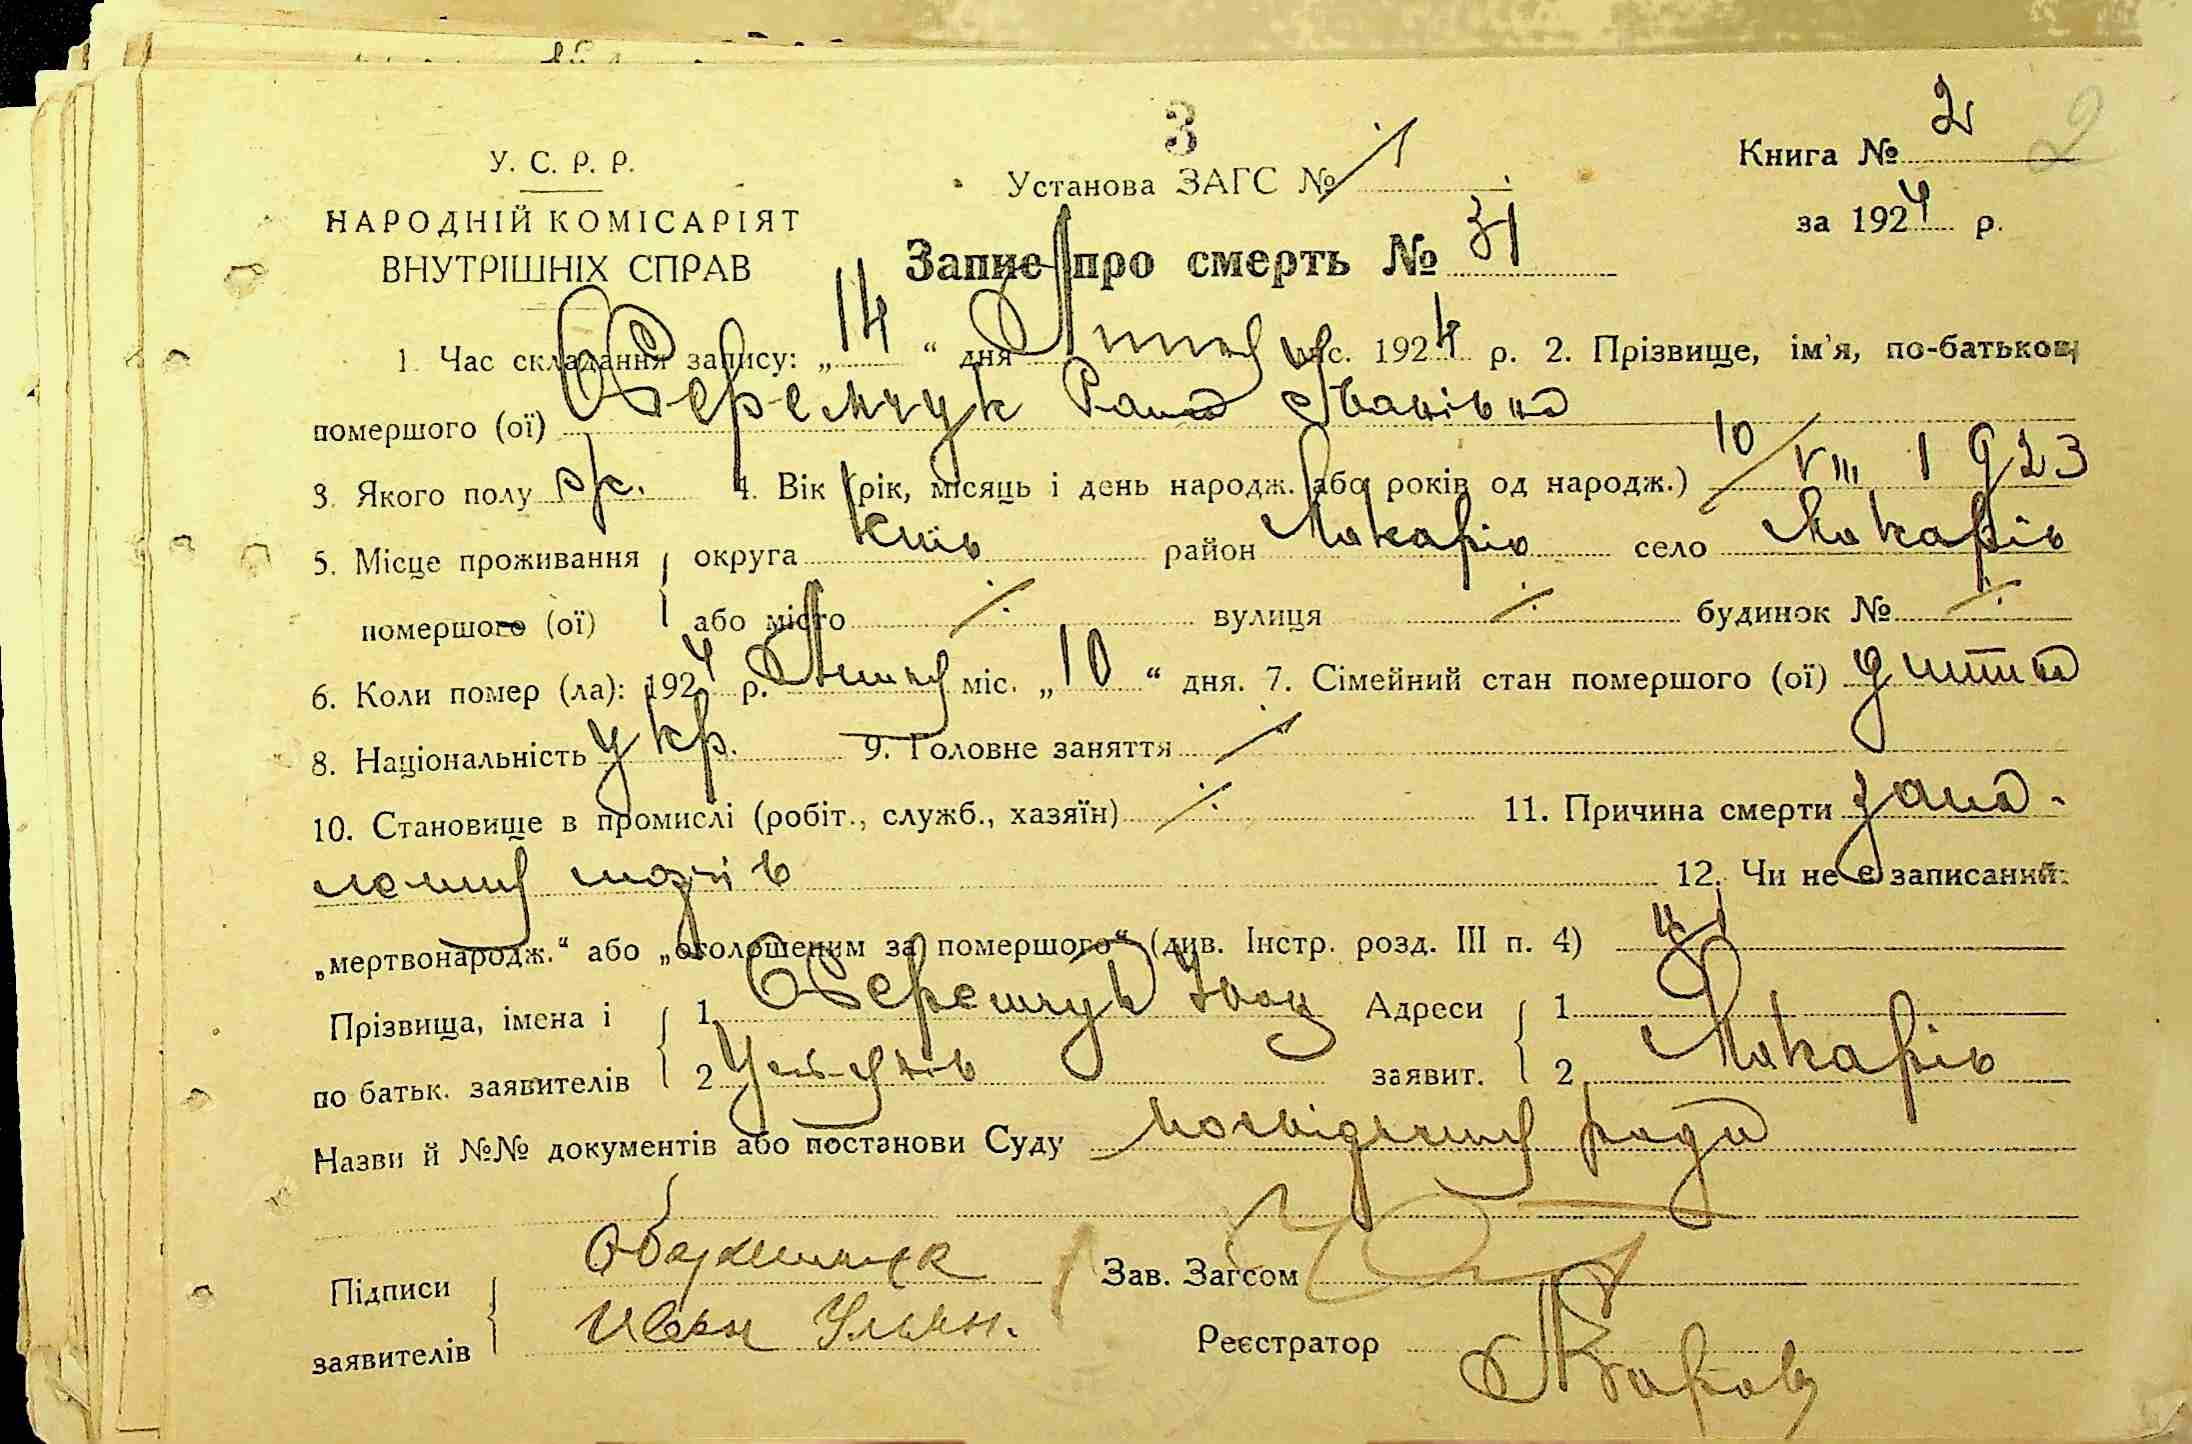 3
2
Книга № 2
У. С. Р. Р.
Установа ЗАГС № 1
за 1924 р.
НАРОДНІЙ КОМІСАРІЯТ
ВНУТРІШНІХ СПРАВ
Запис про смерть № 31
1. Час складання запису: „14“ дня Липня міс. 1924 р. 2. Прізвище, ім'я, по-батькові
помершого (ої) Обремчук Иванівна
3. Якого полу ж. 4. Вік (рік, місяць і день народж. або років од народж.) 10/VIII 1923
5. Місце проживання округа Київ район Макарів село Макарів
помершого (ої) або місто ⁒ вулиця ⁒ будинок № ⁒
6. Коли помер (ла): 1924 р. Липня міс. „10“ дня. 7. Сімейний стан помершого (ої) дитина
8. Національність укр. 9. Головне заняття
10. Становище в промислі (робіт., служб., хазяїн) ⁒ 11. Причина смерти запа-
лення мозгів 12. Чи не є записаний:
„мертвонародж.“ або „оголошеним за помершого“ (див. Інстр. розд. III п. 4) ні
Прізвища, імена і 1 Обремчук Іван Адреси 1
по батьк. заявителів 2 заявит. 2 Макарів
Назви й №№ документів або постанови Суду посвідчення ради
Підписи Зав. Загсом
Иван Ульян.
заявителів Реєстратор